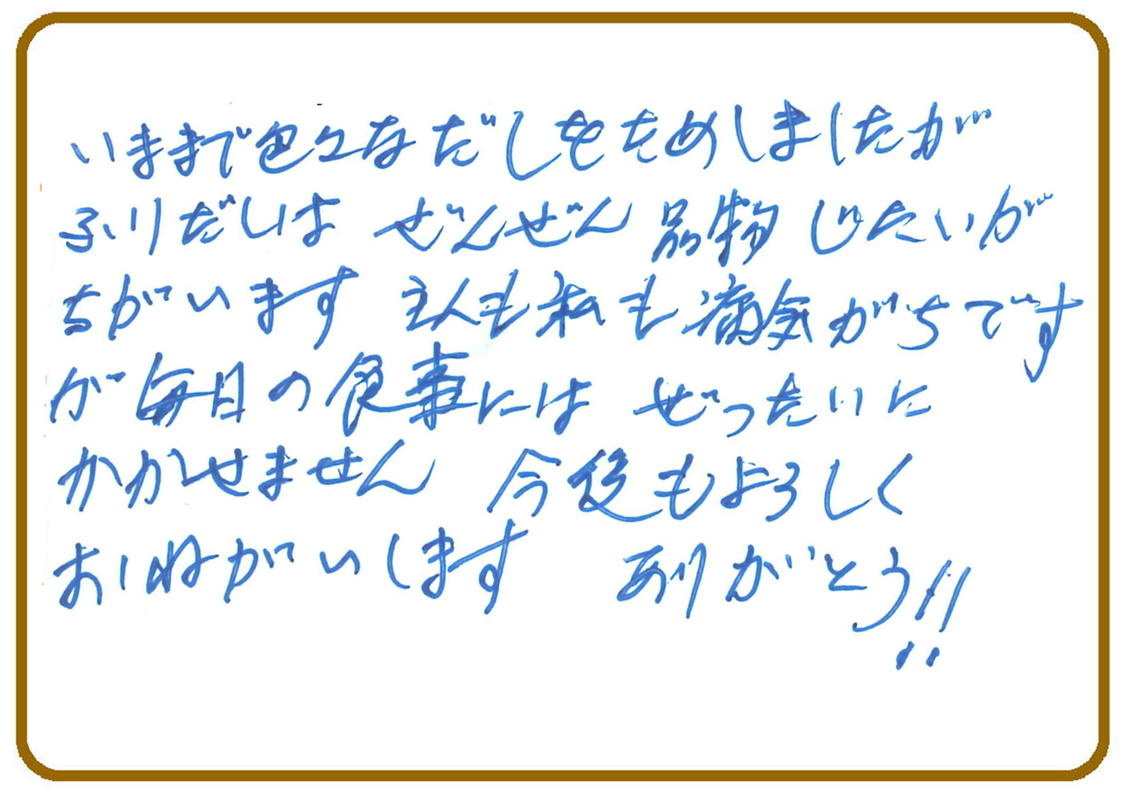 いままで色々なだしをためしましたが
ふりだしは ぜんぜん 品物 じたいが
ちがいます 主人も私も病気がちです
が毎日の食事には ぜったいに
かかせません 今後もよろしく
おねがいします ありがとう!!